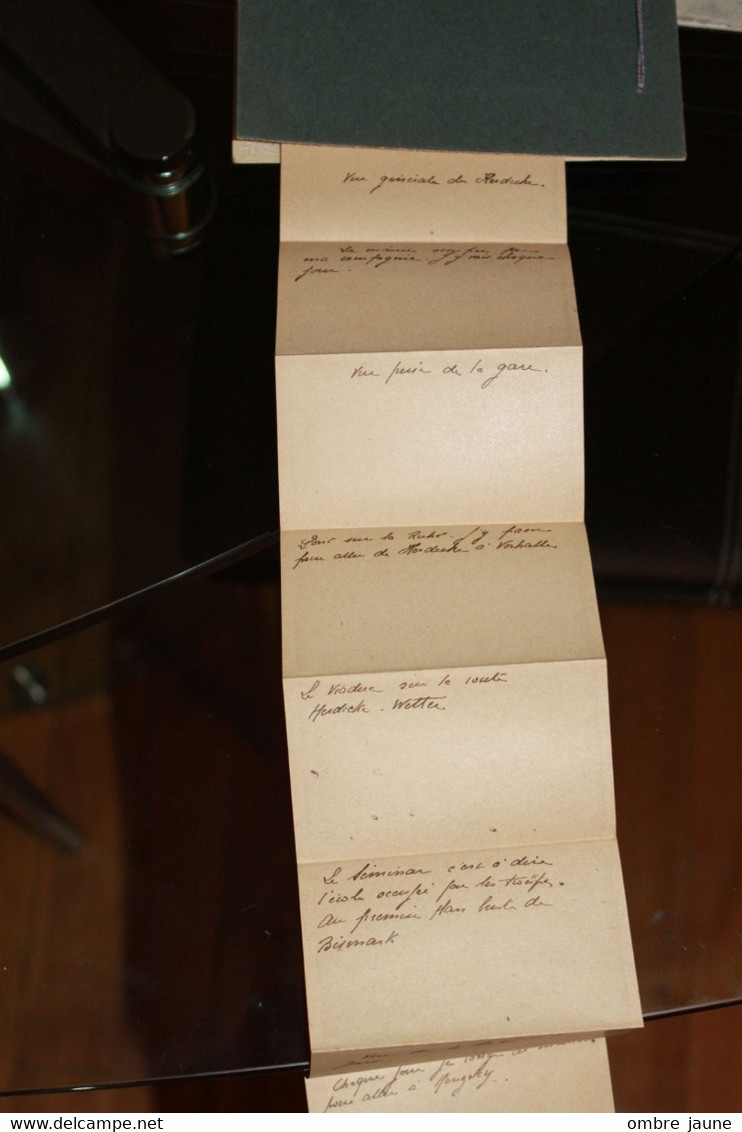 Vue générale de Herdecke.
La mairie occupée par
ma compagnie. J'y vais chaque
jour.
Vue prise de la gare.
Pont sur la Ruhr. J'y passe
pour aller de Herdecke à Vorhalle
Le Viaduc sur la route
Herdecke - Wetter
Le Seminar c'est à dire
l'école occupée par les troupes.
Au premier plan buste de
Bismark
Chaque jour je longe
pour aller à
ombre jaune